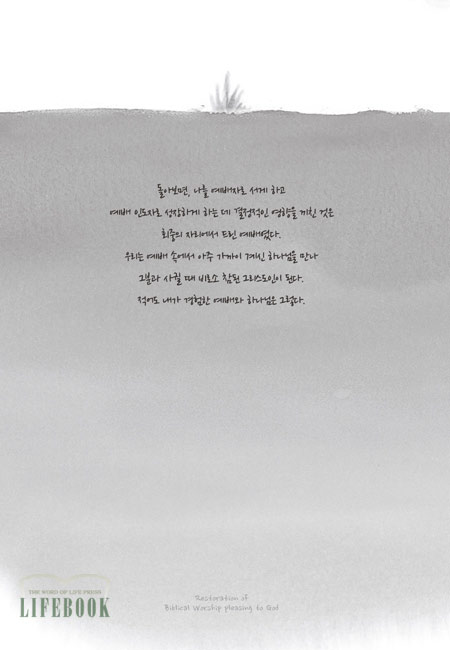 돌아보면, 나를 예배자로 서게 하고
예배 인도자로 성장하게 하는 데 결정적인 영향을 끼친 것은
회중의 자리에서 드린 예배였다.
우리는 예배 속에서 아주 가까이 계신 하나님을 만나
그분과 사귈 때 비로소 참된 그리스도인이 된다.
적어도 내가 경험한 예배와 하나님은 그렇다.
THE WORD OF LIFE PRESS
LIFEBOOK
Restoration of
Biblical Worship pleasing to God